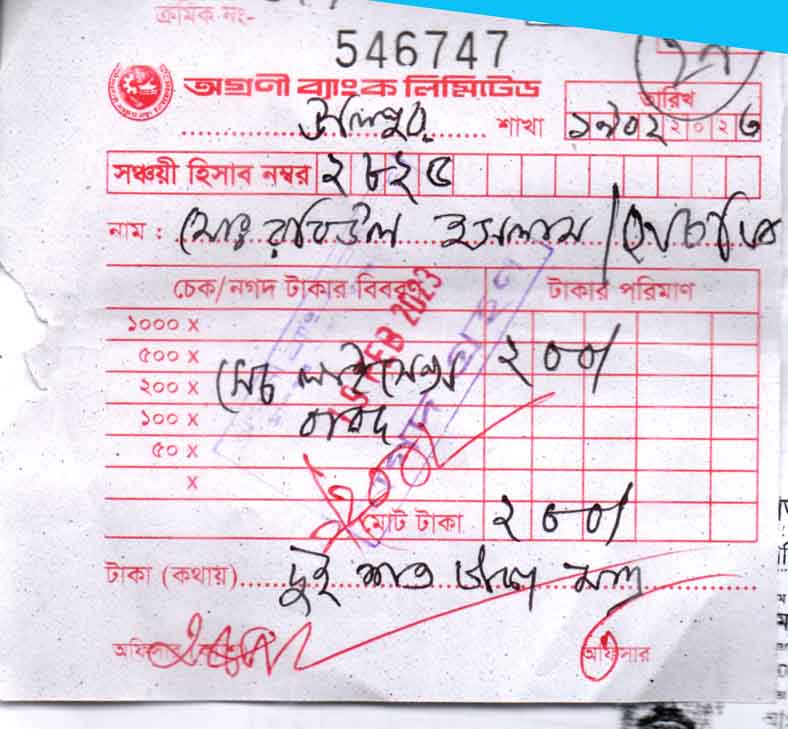 ক্রমিক নং-
546747
অগ্রণী ব্যাংক লিমিটেড
তারিখ
উলিপুর শাখা ১৯ ০২ ২০২৩
সঞ্চয়ী হিসাব নম্বর ২৮২৫
নাম : মোঃ রবিউল ইসলাম /
চেক/নগদ টাকার বিবরণ টাকার পরিমাণ
১০০০ X
৫০০ X
সেচ লাইসেন্স ২০০/
২০০ X
১০০ X বাবদ
৫০ X
X
২০০/
মোট টাকা ২০০/
টাকা (কথায়) দুই শত টাকা মাত্র
অফিসার
FEB 2023